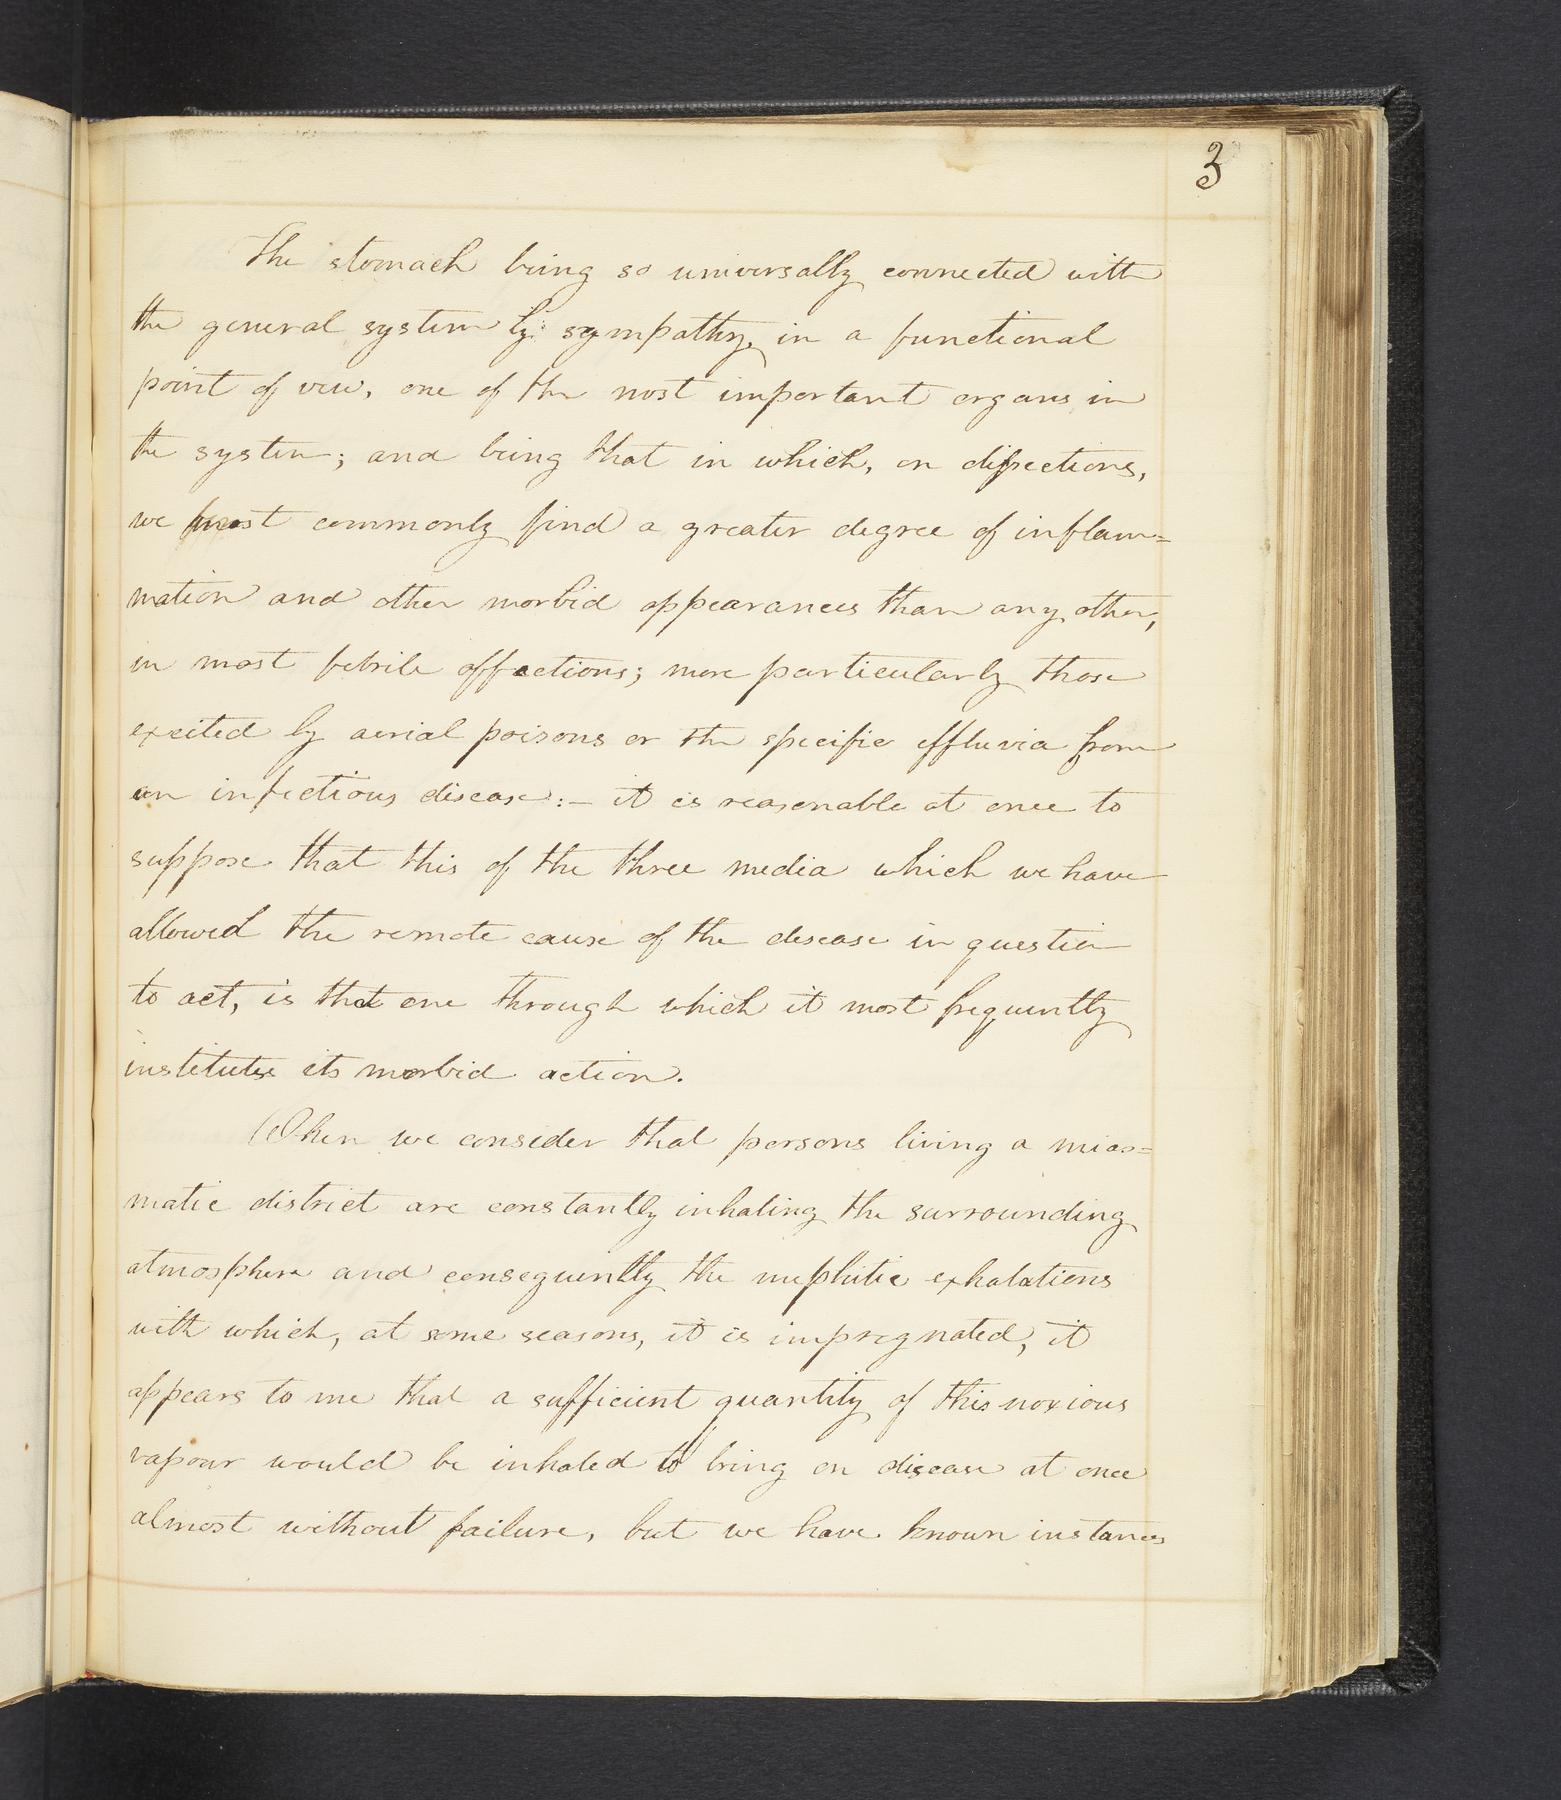 3
The stomach being so universally connected with
the general system by sympathy, in a functional
point of view, one of the most important organs in
the system; and being that in which, on dissections,
we most commonly find a greater degree of inflam=
mation and other morbid appearances than any other,
in most febrile affections; more particularly those
excited by aerial poisons or the specific effluvia from
an infectious disease:– it is reasonable at once to
suppose that this of the three media which we have
allowed the remote cause of the disease in question
to act, is that one through which it most frequently
institutes its morbid action.
When we consider that persons living a mias=
matic district are constantly inhaling the surrounding
atmosphere and consequently the mephitic exhalations
with which, at some seasons, it is impregnated, it
appears to me that a sufficient quantity of this noxious
vapour would be inhaled to bring on disease at once
almost without failure, but we have known instances